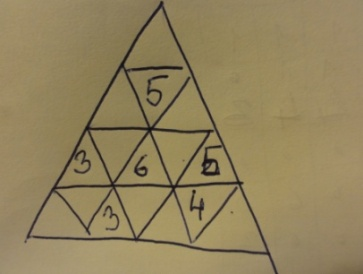 5
3 6 5
3 4